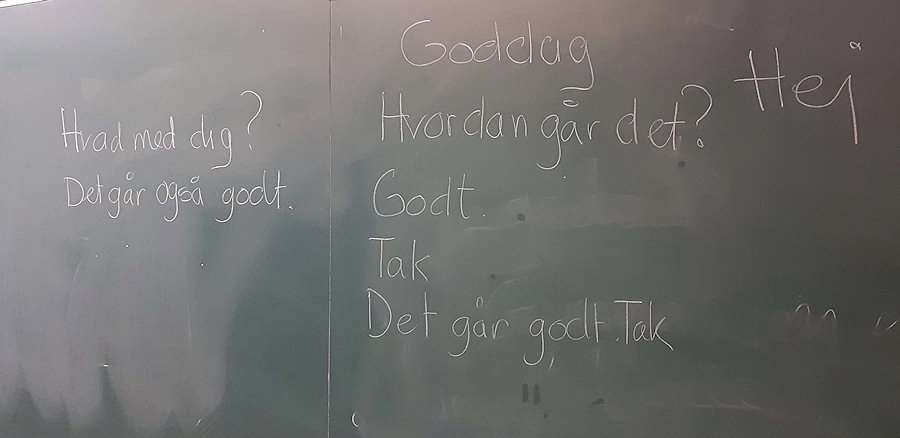 Hvad med dig?
Det går også godt.
Goddag
Hej
Hvordan går det?
Godt.
Tak
Det går godt. Tak